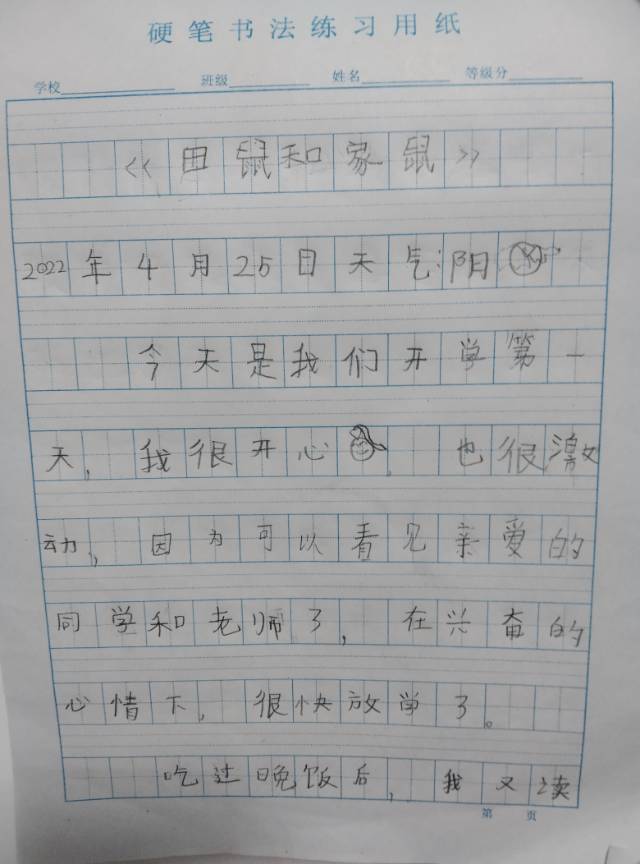 硬笔书法练习用纸
学校 班级 姓名 等级分
《田鼠和家鼠》
2022年4月25日天气:阳
今天是我们开学第一
天，我很开心。也很激
动，因为可以看见亲爱的
同学和老师了，在兴奋的
心情下，很快放学了。
吃过晚饭后，我又读
第 页